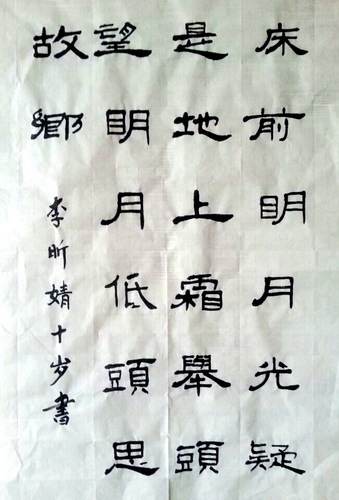 床前明月光疑
是地上霜舉頭
望明月低頭思
故鄉
李昕婧十岁書